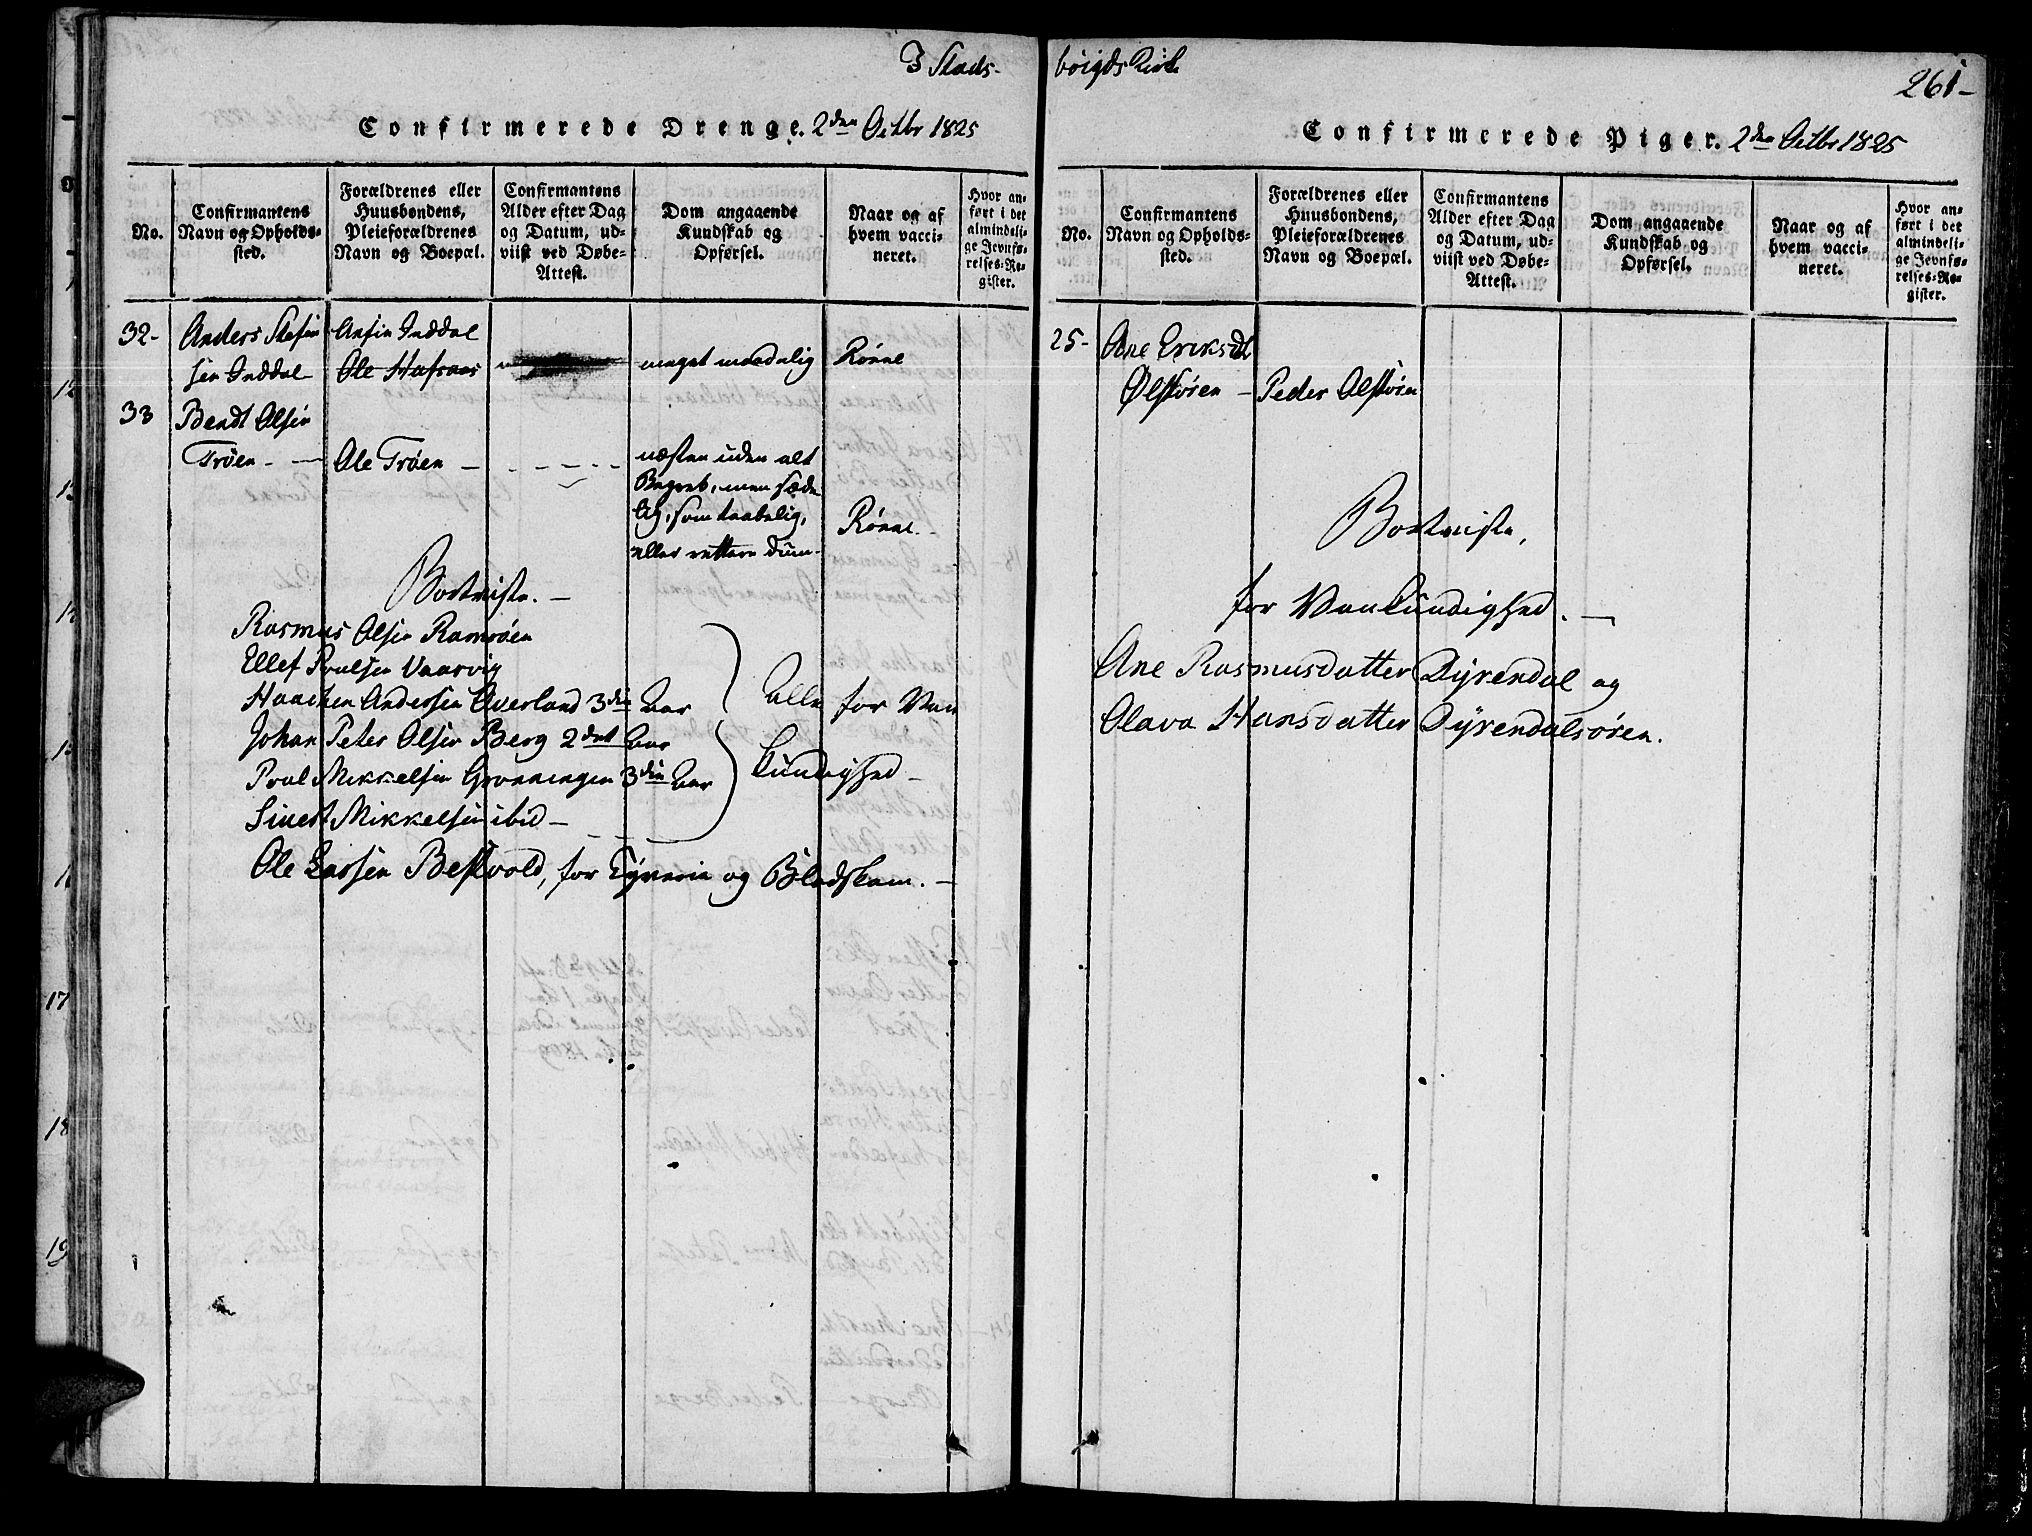 3 Stads-
Confirmerede Drenge. 2den Octbr 1825
No.
Confirmantens
Navn og Opholds-
sted.
Forældrenes eller
Huusbondens,
Pleieforældrenes
Navn og Boepæl.
Confirmantens
Alder efter Dag
og Datum, ud-
viist ved Døbe-
Attest.
Dom angaaende
Kundskab og
Opførsel.
Naar og af
hvem vacci-
neret.
Hvor an-
ført i det
almindeli-
ge Jevnfø-
relses-Re-
gister.
32- Anders
sen Inddal
Inddal
Ole
meget maadelig
Rönne
33 Bendt Olsen
Tröen - Ole Tröen -
næsten uden alt
Begreb, men sæde-
lig, som taabelig,
eller rettere dum-
Rönne.-
Bortviste. -
Rasmus Olsen Ramsöen
Ellef Poulsen Vaarvig
Haachen Andersen Averland 3die Aar
Johan Peter Olsen Berg 2det Aar
Poul Mikkelsen Grönningen 3die Aar
Sivert Mikkelsen ibid -
Alle for Van
kundighed -
Ole Larsen Bestvold, for Tyverie og Blodskam. -
böigds Kirke
261-
Confirmerede Piger. 2den Octbr 1825
No.
Confirmantens
Navn og Opholds-
sted.
Forældrenes eller
Huusbondens,
Pleieforældrenes
Navn og Boepæl.
Confirmantens
Alder efter Dag
og Datum, ud-
viist ved Døbe-
Attest.
Dom angaaende
Kundskab og
Opførsel.
Naar og af
hvem vacci-
neret.
Hvor an-
ført i det
almindeli-
ge Jevnfø-
relses-Re-
gister.
25- Ane Eriksdt
Ølstören - Peder Olstören
Bortviste,
for Vankundighed. -
Ane Rasmusdatter Dyrendal og
Olava Hansdatter Dyrendalsören.
12
17
18
19